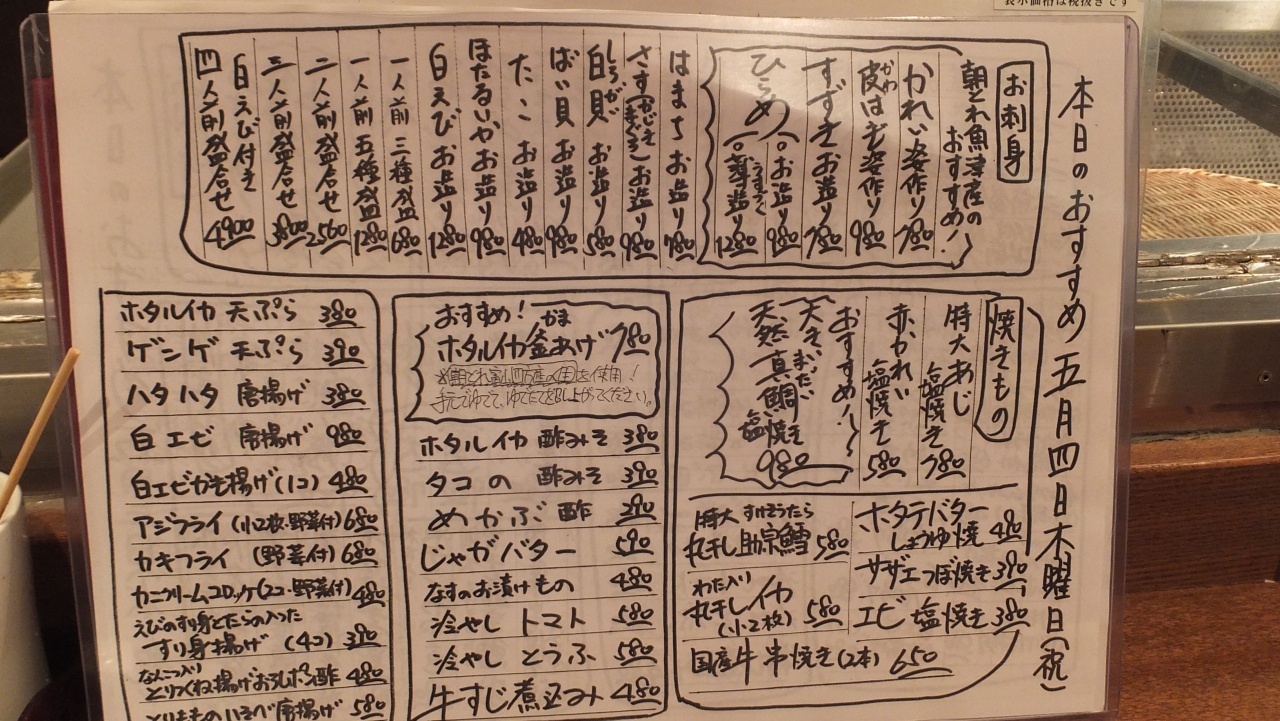 表示価格は税抜きです
本日のおすすめ 五月四日木曜日(祝)
お刺身
朝とれ魚津産の
おすすめ!
かれい姿作り 780
かわ
皮はぎ姿作り 980
すずきお造り 780
ひらめ
お造り 980
うすづくり
薄造り 1280
はまちお造り 780
さす(かじきまぐろ)お造り 980
しろがい
白貝お造り 580
ばい貝お造り 980
たこお造り 480
ほたるいかお造り 980
白えびお造り 1280
一人前 三種盛 680
一人前 五種盛 1280
二人前盛合せ 2560
三人前盛合せ 3800
白えび付き
四人前盛合せ 4900
焼きもの
特大あじ
塩焼き 780
赤かれい
塩焼き 580
おすすめ!
大きまだい
天然真鯛 塩焼き 980
特大 すけそうたら
丸干し助宗鱈 580
わた入り
丸干しイカ
(小2枚) 580
国産牛串焼き(2本) 650
ホタテバター
しょうゆ焼 480
サザエつぼ焼き 390
エビ 塩焼き 380
おすすめ!
かま
ホタルイカ釜あげ 780
※朝とれ富山四方産の(生)を使用!
手元でゆでて、ゆでたてをお召し上がりください。
ホタルイカ 酢みそ 380
タコの 酢みそ 390
めかぶ酢 290
じゃがバター 590
なすのお漬けもの 480
冷やし トマト 580
冷やし とうふ 580
牛すじ煮込み 480
ホタルイカ 天ぷら 380
ゲンゲ 天ぷら 390
ハタハタ 唐揚げ 380
白エビ 唐揚げ 980
白エビかき揚げ(1コ) 480
アジフライ(小2枚・野菜付) 680
カキフライ (野菜付) 680
カニクリームコロッケ(2コ・野菜付) 480
えびのすり身とたらの入った
すり身揚げ (4コ) 390
なんこつ入り
とりつくね揚げおろしポン酢 480
とりもものいそべ唐揚げ 580